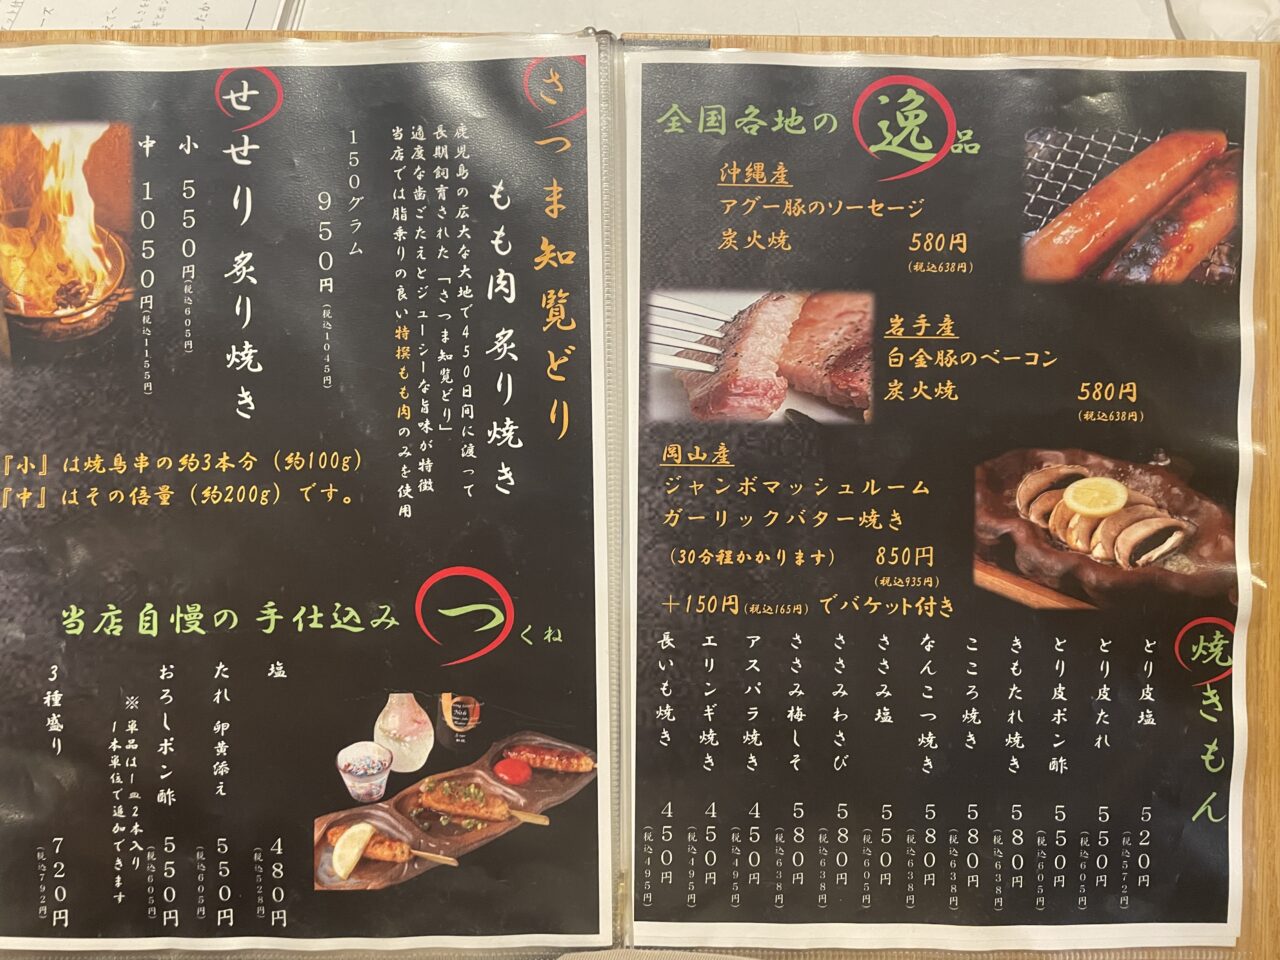 さつま知覧どり
もも肉 炙り焼き
鹿児島の広大な大地で450日間に渡って
長期飼育された「さつま知覧どり」
適度な歯ごたえとジューシーな旨味が特徴
当店では脂乗りの良い特撰もも肉のみを使用
150グラム
950円(税込1045円)
せせり 炙り焼き
小 550円(税込605円)
中 1050円(税込1155円)
『小』は焼鳥串の約3本分(約100g)
『中』はその倍量(約200g)です。
当店自慢の 手仕込み つくね
塩 480円(税込528円)
たれ 卵黄添え 550円(税込605円)
おろしポン酢 550円(税込605円)
※単品は1皿2本入り
1本単位で追加できます
3種盛り 720円(税込792円)
全国各地の 逸品
沖縄産
アグー豚のソーセージ
炭火焼 580円
(税込638円)
岩手産
白金豚のベーコン
炭火焼 580円
(税込638円)
岡山産
ジャンボマッシュルーム
ガーリックバター焼き
(30分程かかります) 850円
(税込935円)
+150円(税込165円)でバケット付き
焼きもん
とり皮塩 520円(税込572円)
とり皮たれ 550円(税込605円)
とり皮ポン酢 550円(税込605円)
きもたれ焼き 580円(税込638円)
こころ焼き 580円(税込638円)
なんこつ焼き 580円(税込638円)
ささみ塩 550円(税込605円)
ささみわさび 580円(税込638円)
ささみ梅しそ 580円(税込638円)
アスパラ焼き 450円(税込495円)
エリンギ焼き 450円(税込495円)
長いも焼き 450円(税込495円)